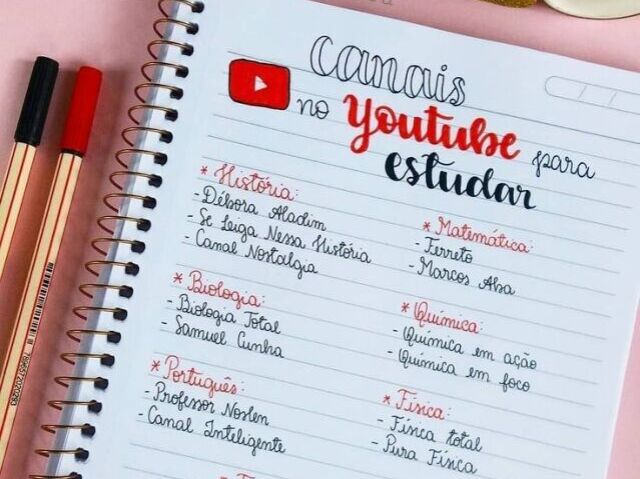 canais
no Youtube para
estudar
* História:
- Débora Aladim
- Se Leiga Nessa História
- Canal Nostalgia
* Matemática:
- Ferreto
- Marcos Aba
* Biologia:
- Biologia Total
- Samuel Cunha
* Química:
- Química em ação
- Química em foco
* Português:
- Professor Noslen
- Canal Inteligente
* Física:
- Física total
- Pura Física